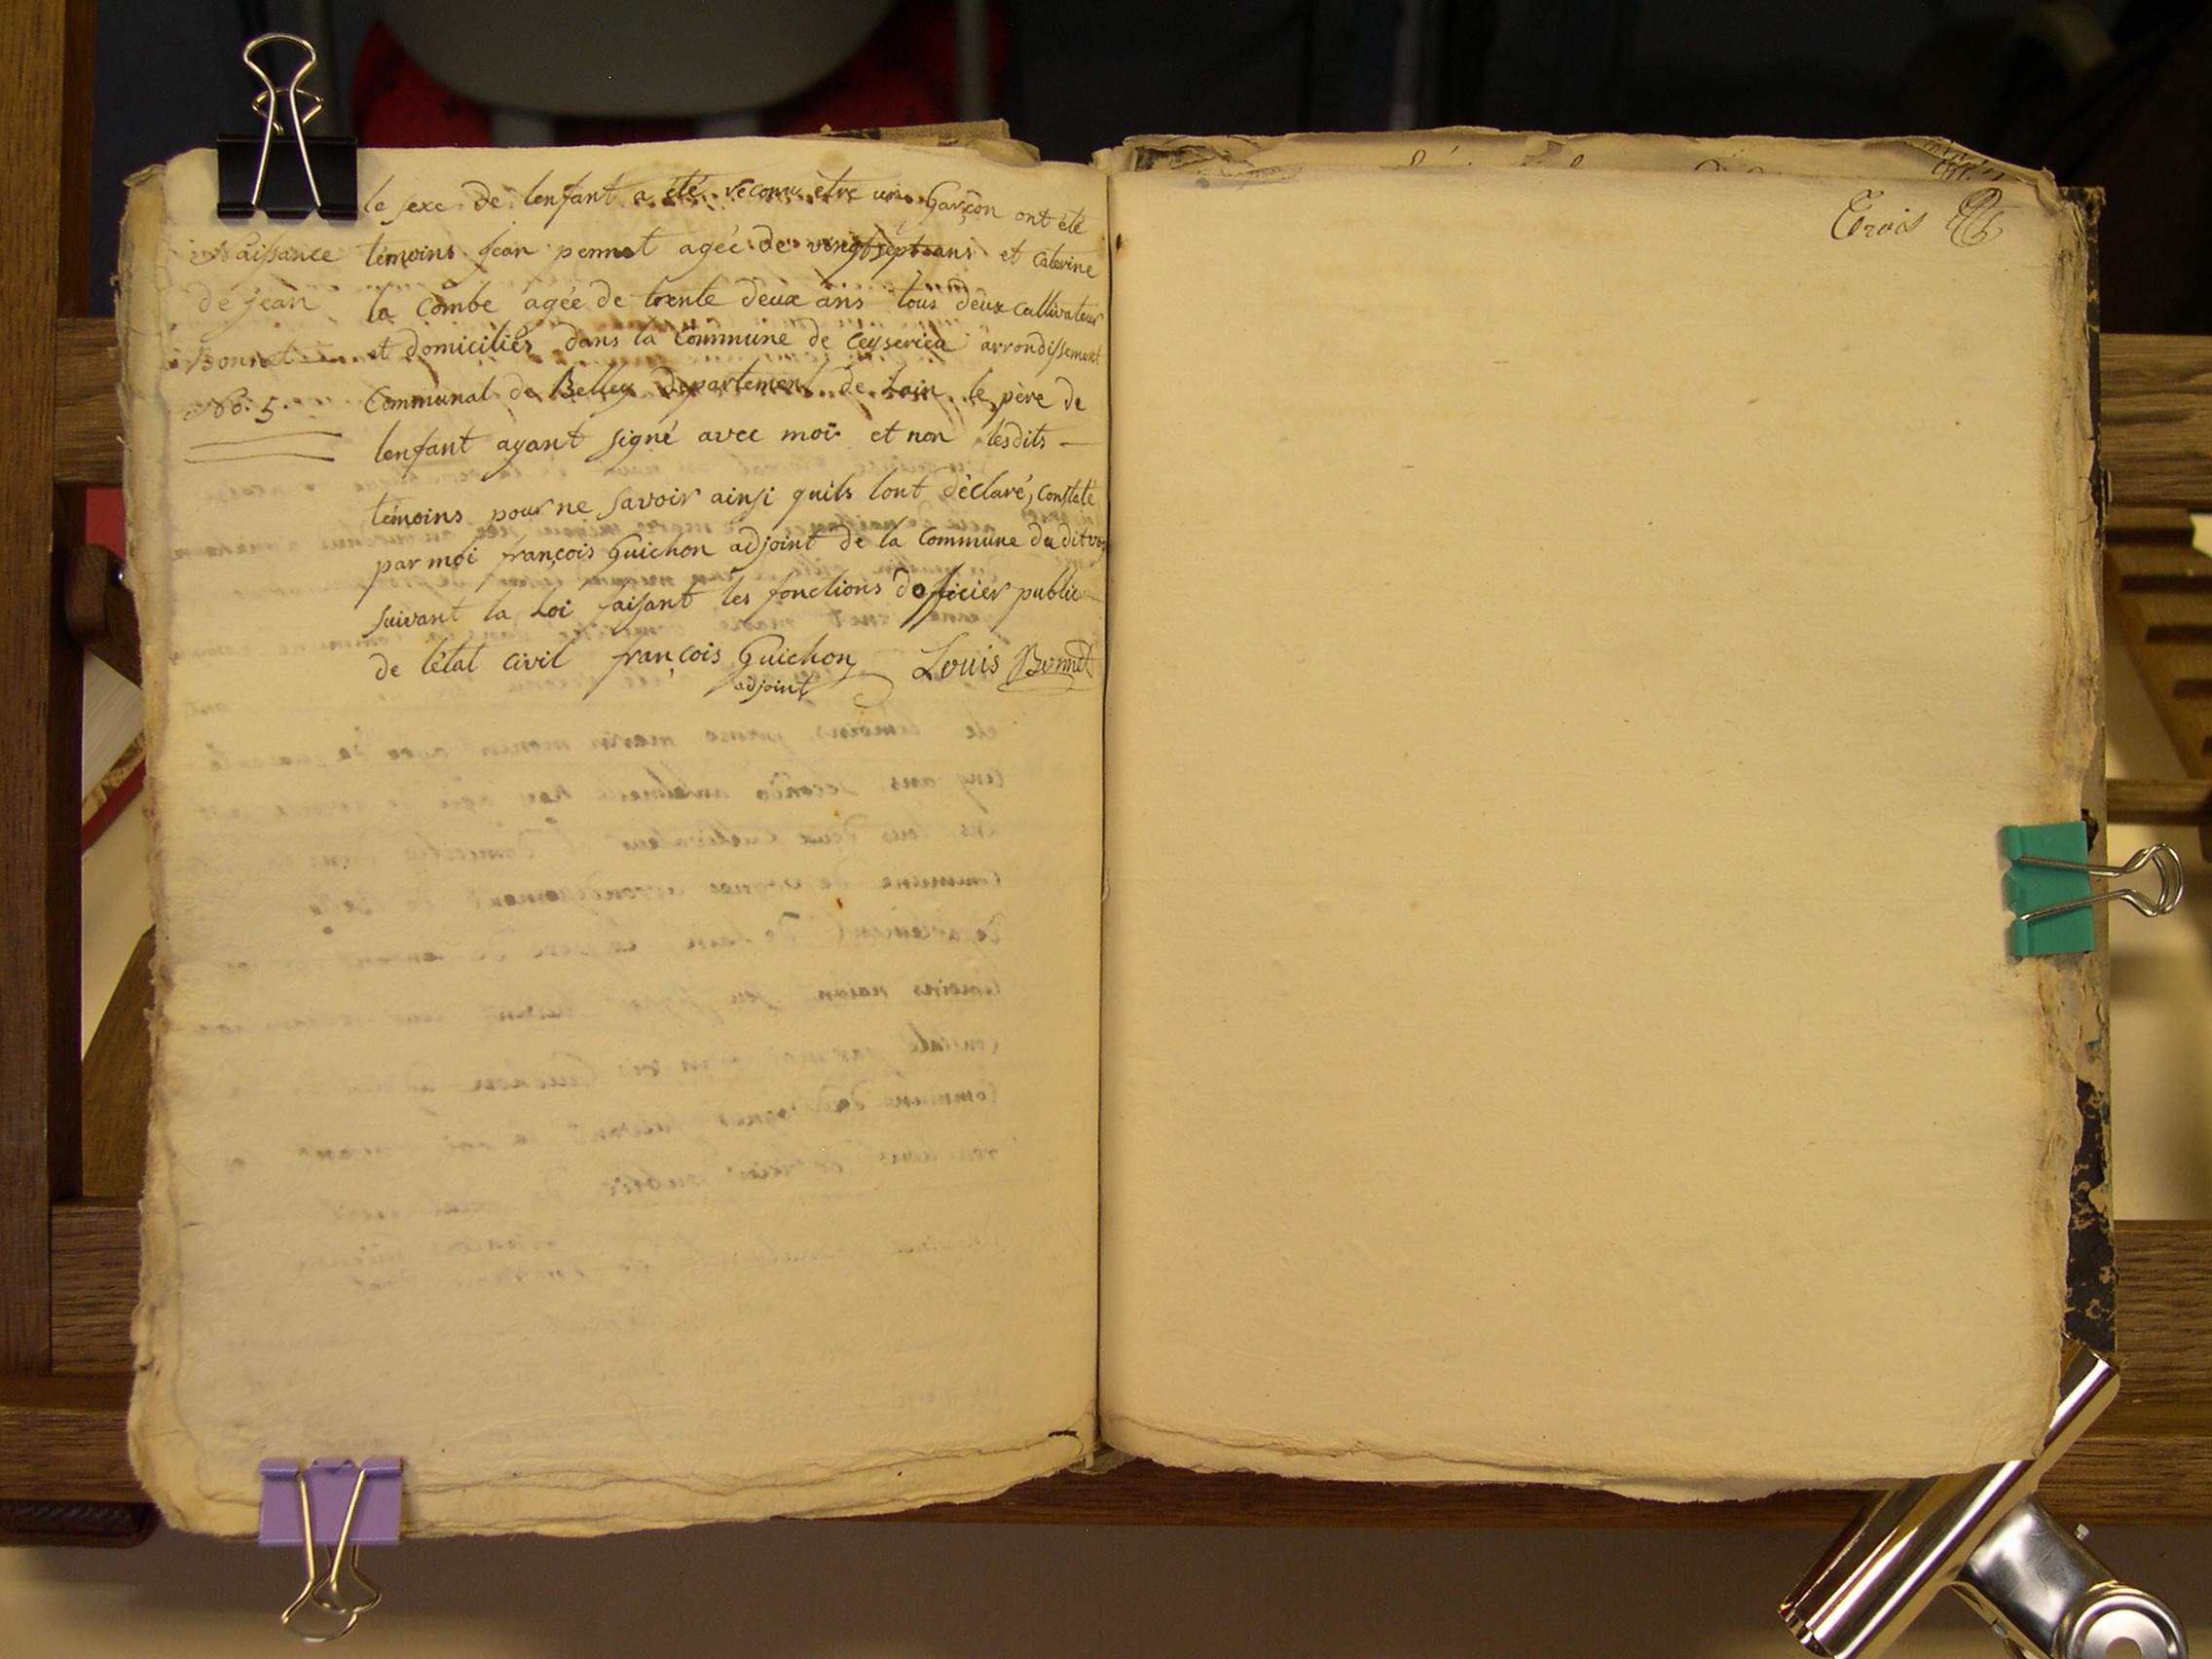 le sexe de lenfant a été reconu etre un Garçon ont été
Naissance
témoins jean pennet agée de vingt sept ans et caterine
de jean
la Combe agée de trente deux ans tous deux cultivateur
Bonnet
et domiciliés dans la Commune de Ceyseriea arrondissement
No. 5.
Communal de Belley departement de Lain le père de
lenfant ayant signé avec moi et non lesdits
témoins pour ne savoir ainsi quils lont déclaré, constaté
par moi françois Guichon adjoint de la Commune du dit
suivant la Loi faisant les fonctions dofficier public
de létat civil françois Guichon Louis Bonnet
adjoint
Trois